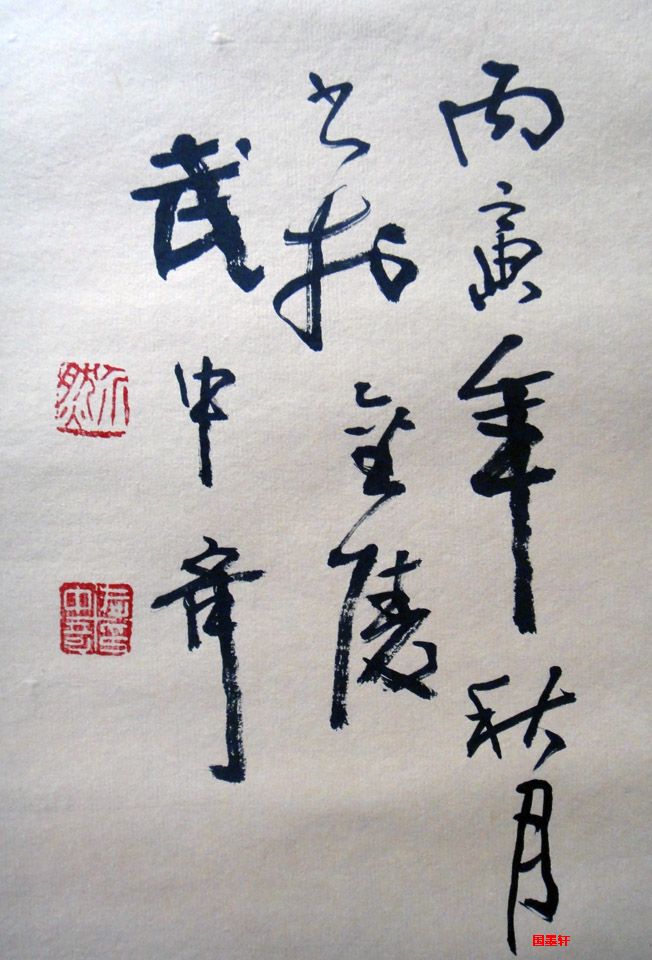 丙寅年秋月
书於金陵
武中奇
国墨轩